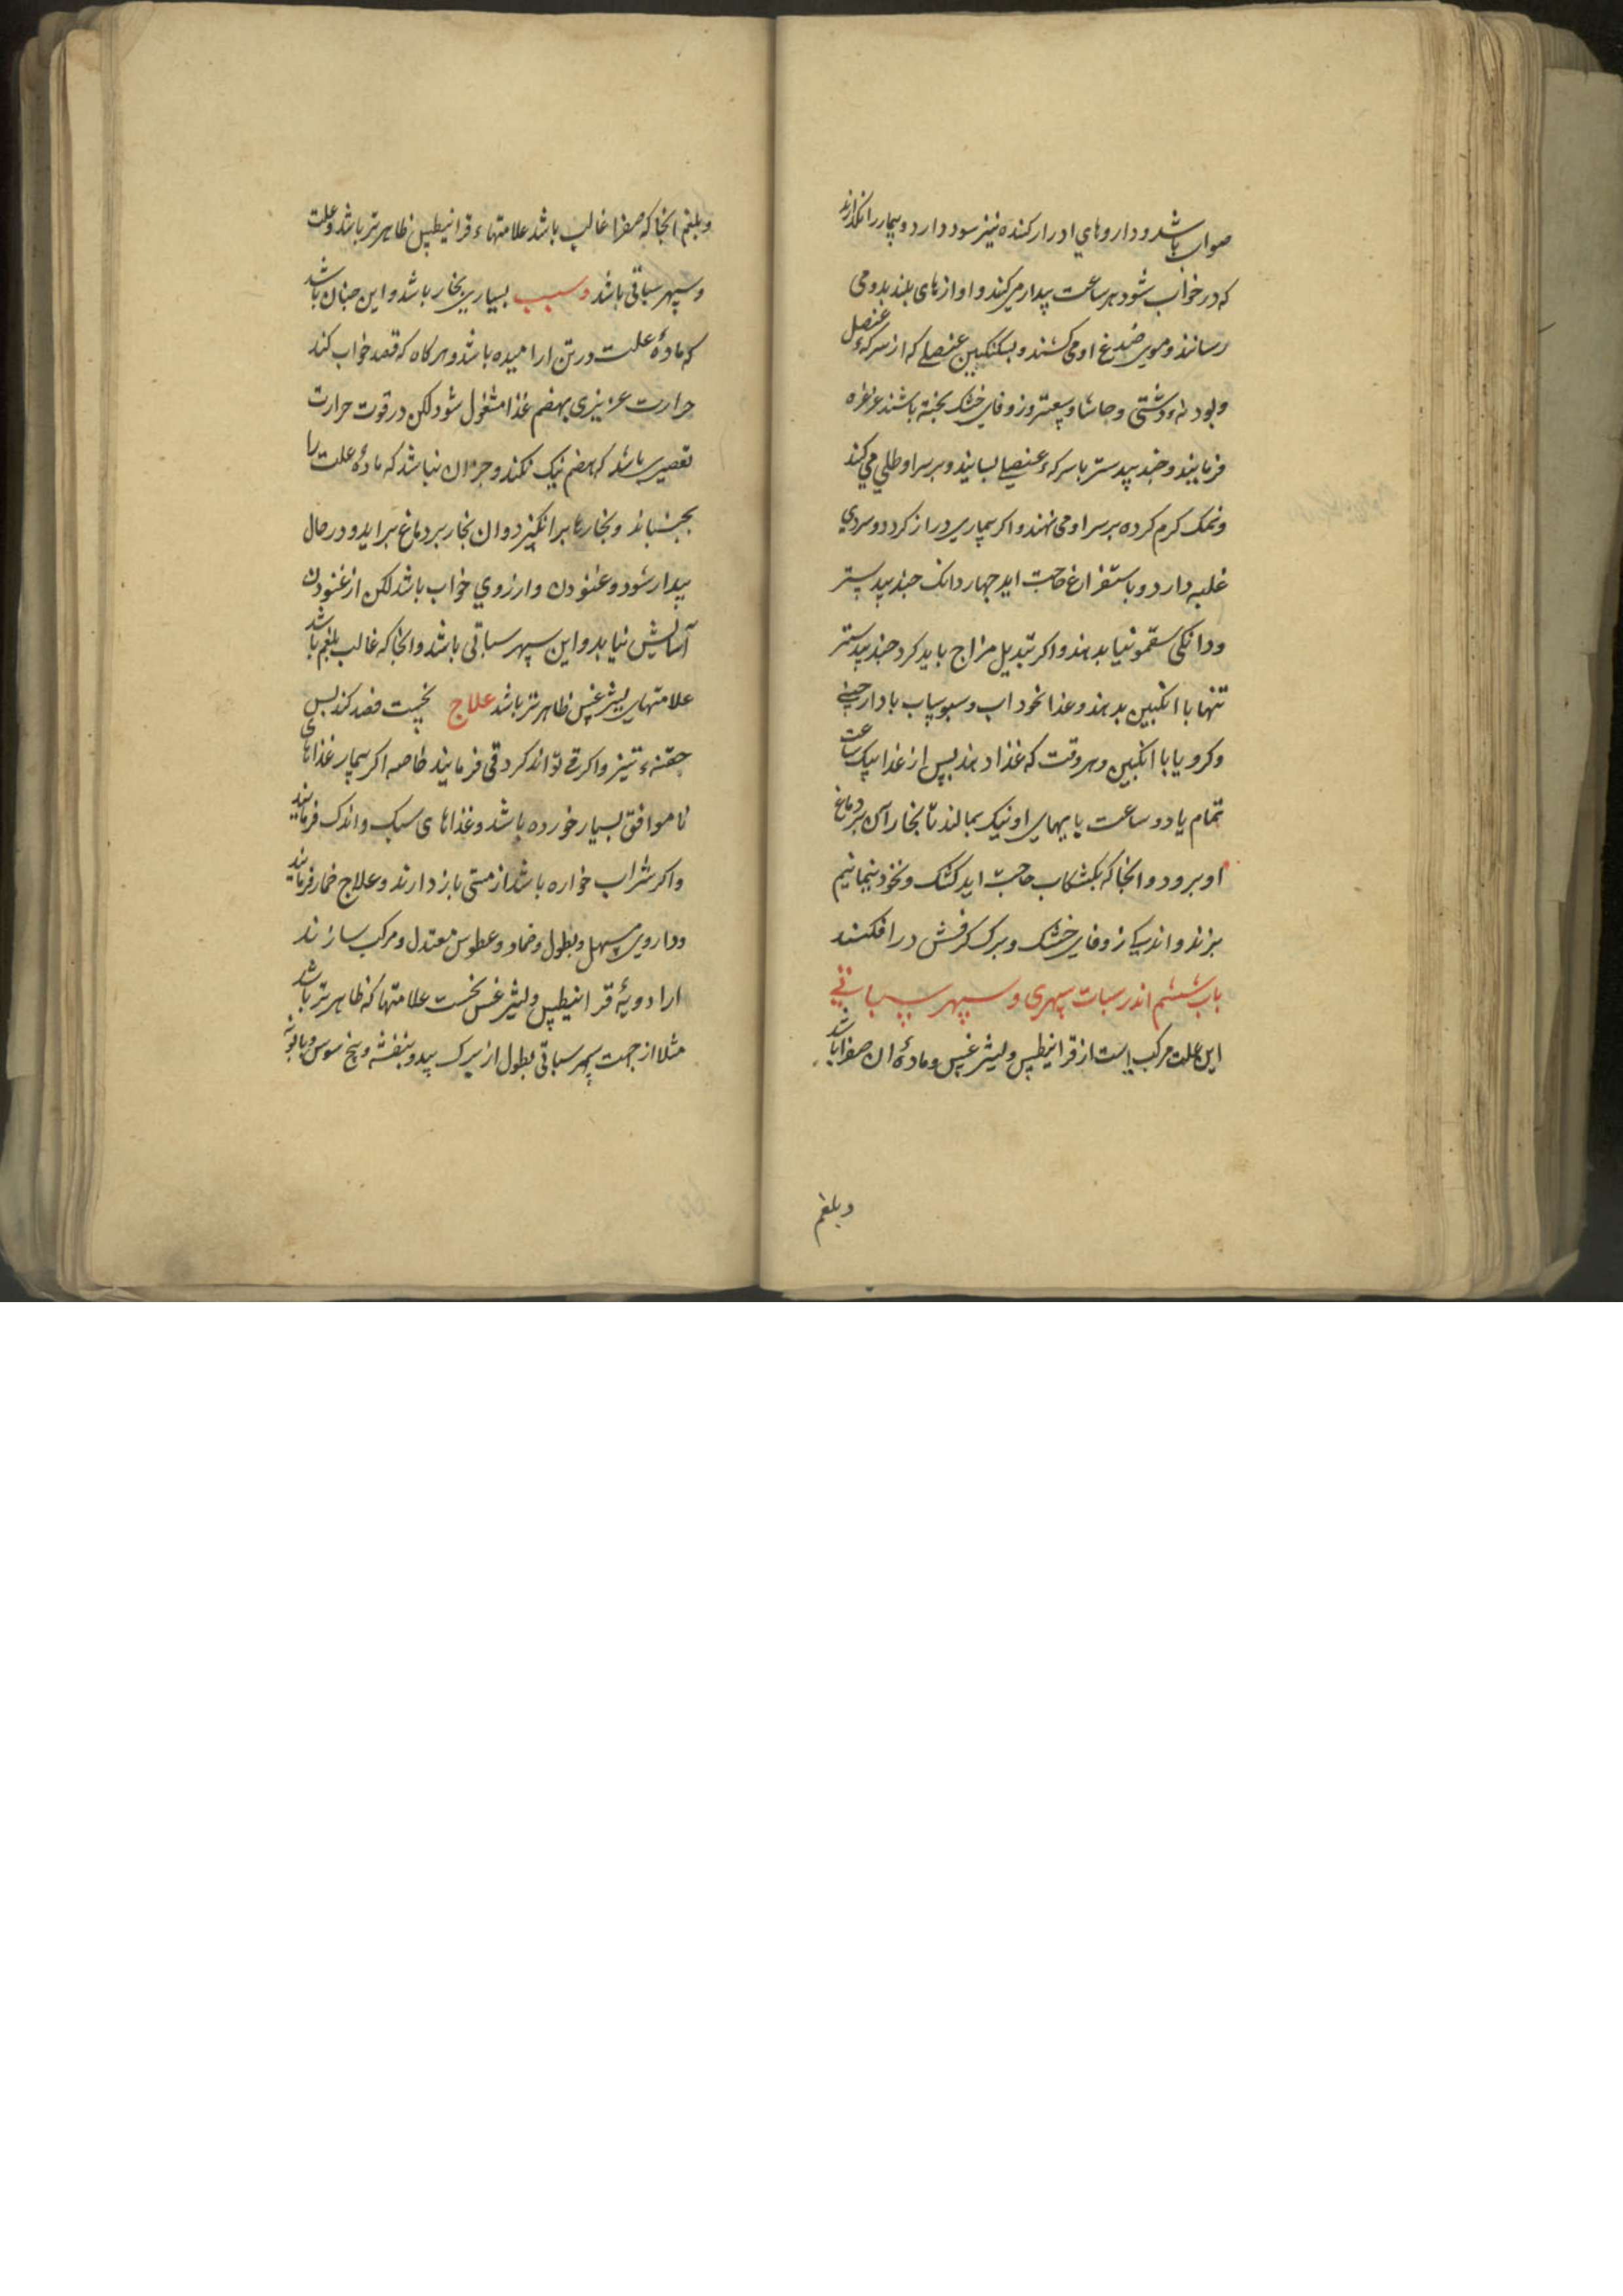 صواب باشد و داروهای ادرار کننده نیز سود دارد و بیمار را نکذارند
که در خواب شود هر ساعت بیدار می کنند و اوازهای بلند بدو می
رسانند و موی صدغ او می کشند و بسکنکبین عنصلی که از سرکهٔ عنصل
و بودنهٔ دشتی و حاشا و سعتر و زوفای خشک بخته باشند غرغره
فرمایند و جند بیدستر با سرکهٔ عنصلی بسایند و بر سر او طلی می کنند
و نمک کرم کرده بر سر او می نهند و اکر بیماری دراز کردد و سردی
غلبه دارد و باستفراغ حاجت اید جهار دانک جند بیدستر
و دانکی سقمونیا بدهند و اکر تبدیل مزاج باید کرد جند بیدستر
تنها با انکبین بدهند و غذا نخوداب و سبوساب با دارچینی
و کرویا با انکبین و هر وقت که غذا دهند بس از غذا یک ساعت
تمام یا دو ساعت بایهای او نیک بمالند تا بخار آن بر دماغ
او برود و انجا که بکشکاب حاجت اید کشک و نخود نیمانیم
بزند و اندکی زوفای خشک و برک کرفش درافکنند
باب ششم اندر سبات سهری و سهر سباتی
این علت مرکب است از قرانیطس و لیثرغس و مادهٔ ان صفرا باشد
و بلغم
و بلغم انجا که صفرا غالب باشد علامتهاء قرانیطس ظاهرتر باشد و علت
و سهر سباتی باشد و سبب بسیاری بخار باشد و این جنان باشد
که مادهٔ علت در تن ارامیده باشد و هر کاه که قصد خواب کند
حرارت عزیزی بهضم غذا مشغول شود لکن در قوت حرارت
تقصیری باشد که هضم نیک نکند و جز ان نباشد که مادهٔ علت را
بجنباند و بخارها برانکیزد و ان بخار بر دماغ براید و در حال
بیدار شود و غنودن و ارزوی خواب باشد لکن از غنودن
آسایش نیابد و این سهر سباتی باشد و انجا که غالب بلغم باشد
علامتهای لیثرغس ظاهرتر باشد علاج نخست فصد کنند بس
حقنهء تیز و اکر قی تواند کرد قی فرمایند خاصه اکر بیمار غذاهای
ناموافق بسیار خورده باشد و غذاهای سبک و اندک فرمایند
و اکر شراب خواره باشد از مستی باز دارند و علاج خمار فرمایند
و داروی مسهل و نطول و ضماد و عطوس معتدل و مرکب سازند
از ادویهٔ قرانیطس و لیثرغس نخست علامتها که ظاهرتر باشد
مثلا از جهت سهر سباتی نطول از برک بید و بنفشه و بیخ سوس و بابونه